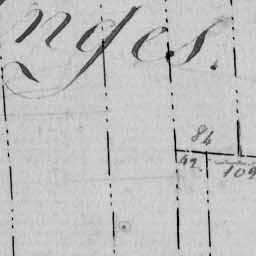 nges.
84
42.
109